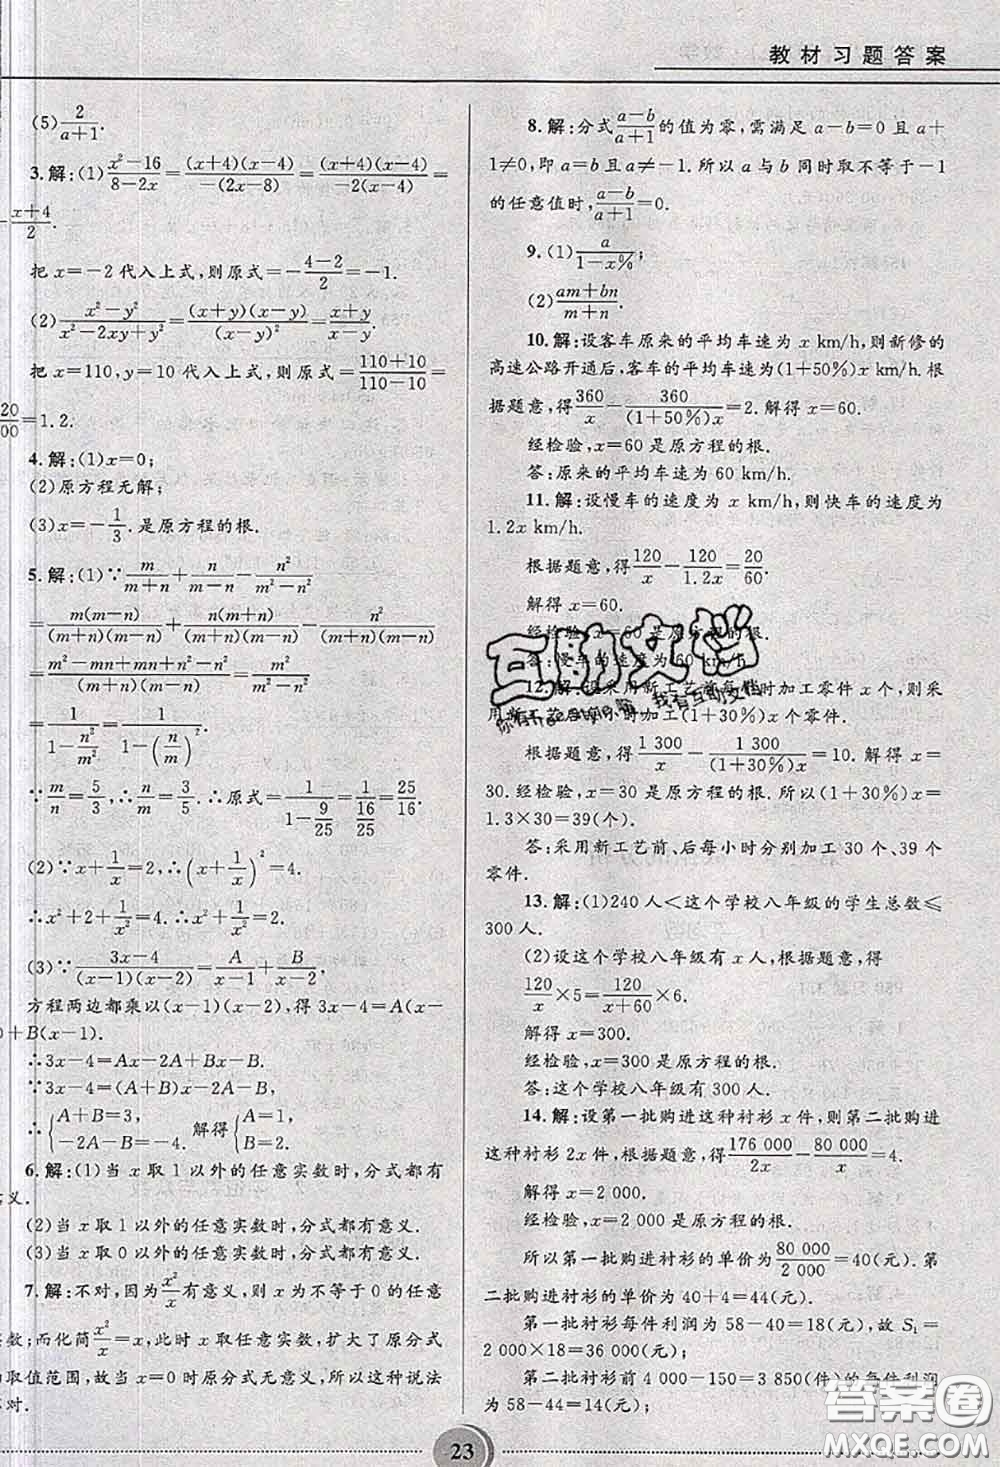 教材习题答案
(5) 2/(a+1).
3.解:(1) (x²-16)/(8-2x) = (x+4)(x-4)/-(2x-8) = (x+4)(x-4)/-2(x-4) =
-(x+4)/2.
把 x=-2 代入上式,则原式=-(-4-2)/2=-1.
(2) (x²-y²)/(x²-2xy+y²) = (x+y)(x-y)/(x-y)² = (x+y)/(x-y).
把 x=110,y=10 代入上式,则原式=(110+10)/(110-10)=
20/00=1.2.
4.解:(1)x=0;
(2)原方程无解;
(3)x=-1/3.是原方程的根.
5.解:(1)∵m/(m+n)+n/(m-n)-n²/(m²-n²)
=m(m-n)/(m+n)(m-n)+n(m+n)/(m+n)(m-n)-n²/(m+n)(m-n)
=(m²-mn+mn+n²-n²)/(m+n)(m-n)=m²/(m²-n²)
=1/(1-n²/m²)=1/(1-(n/m)²)
∵m/n=5/3,∴n/m=3/5.∴原式=1/(1-9/25)=1/(16/25)=25/16.
(2)∵x+1/x=2,∴(x+1/x)²=4.
∴x²+2+1/x²=4,∴x²+1/x²=2.
(3)∵(3x-4)/(x-1)(x-2)=A/(x-1)+B/(x-2)
方程两边都乘以(x-1)(x-2),得 3x-4=A(x-
)+B(x-1).
∴3x-4=Ax-2A+Bx-B.
∵3x-4=(A+B)x-2A-B.
∴{A+B=3, -2A-B=-4. 解得{A=1, B=2.
6.解:(1)当 x 取 1 以外的任意实数时,分式都有
意义.
(2)当 x 取 1 以外的任意实数时,分式都有意义.
(3)当 x 取 0 以外的任意实数时,分式都有意义.
7.解:不对,因为x²/x有意义,则 x 为不等于 0 的任意
实数;而化简x²/x=x,此时 x 取任意实数,扩大了原分式
的取值范围,当 x=0 时原分式无意义,所以这种说法
不对.
8.解:分式(a-b)/(a+1)的值为零,需满足 a-b=0 且 a+
1≠0,即 a=b且a≠-1.所以 a 与 b 同时取不等于-1
的任意值时,(a-b)/(a+1)=0.
9.(1) a/(1-x%);
(2) (am+bn)/(m+n).
10.解:设客车原来的平均车速为 x km/h,则新修的
高速公路开通后,客车的平均车速为(1+50%)x km/h.根
据题意,得360/x-360/(1+50%)x=2.解得 x=60.
经检验,x=60 是原方程的根.
答:原来的平均车速为 60 km/h.
11.解:设慢车的速度为 x km/h,则快车的速度为
1.2x km/h.
根据题意,得120/x-120/1.2x=20/60.
解得 x=60.
经检验,x=60 是原方程的根.
答:慢车的速度为 60 km/h.
12.解:设采用新工艺前每小时加工零件 x 个,则采
用新工艺后每小时加工(1+30%)x 个零件.
根据题意,得1 300/x-1 300/(1+30%)x=10.解得 x=
30.经检验,x=30 是原方程的根.所以(1+30%)x=
1.3×30=39(个).
答:采用新工艺前、后每小时分别加工 30 个、39 个
零件.
13.解:(1)240 人<这个学校八年级的学生总数≤
300 人.
(2)设这个学校八年级有 x 人,根据题意,得
120/x×5=120/(x+60)×6.
解得 x=300.
经检验,x=300 是原方程的根.
答:这个学校八年级有 300 人.
14.解:设第一批购进这种衬衫 x件,则第二批购进
这种衬衫 2x 件,根据题意,得176 000/2x-80 000/x=4.
解得 x=2 000.
经检验,x=2 000 是原方程的根.
所以第一批购进衬衫的单价为80 000/2 000=40(元).第
二批购进衬衫的单价为 40+4=44(元).
第一批衬衫每件利润为 58-40=18(元),故 S₁=
2 000×18=36 000(元);
第二批衬衫前 4 000-150=3 850(件)的每件利润
为 58-44=14(元);
互助文档
我有互助文档
23
答案圈
MXQE.COM